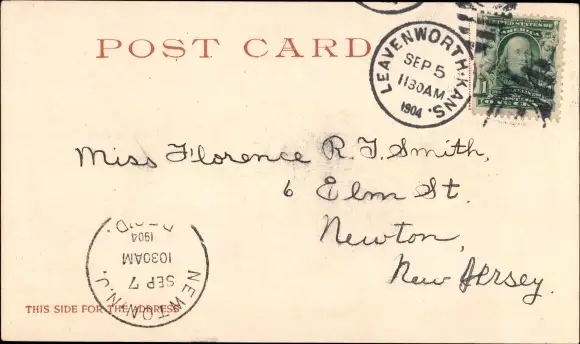 POST CARD
LEAVENWORTH, KANS.
SEP 5
1130AM
1904
UNITED STATES OF
AMERICA
1
Miss Florence R. T. Smith,
6 Elm St.
Newton,
New Jersey.
NEWTON, N.J.
SEP 7
1030AM
1904
REC'D.
THIS SIDE FOR THE ADDRESS